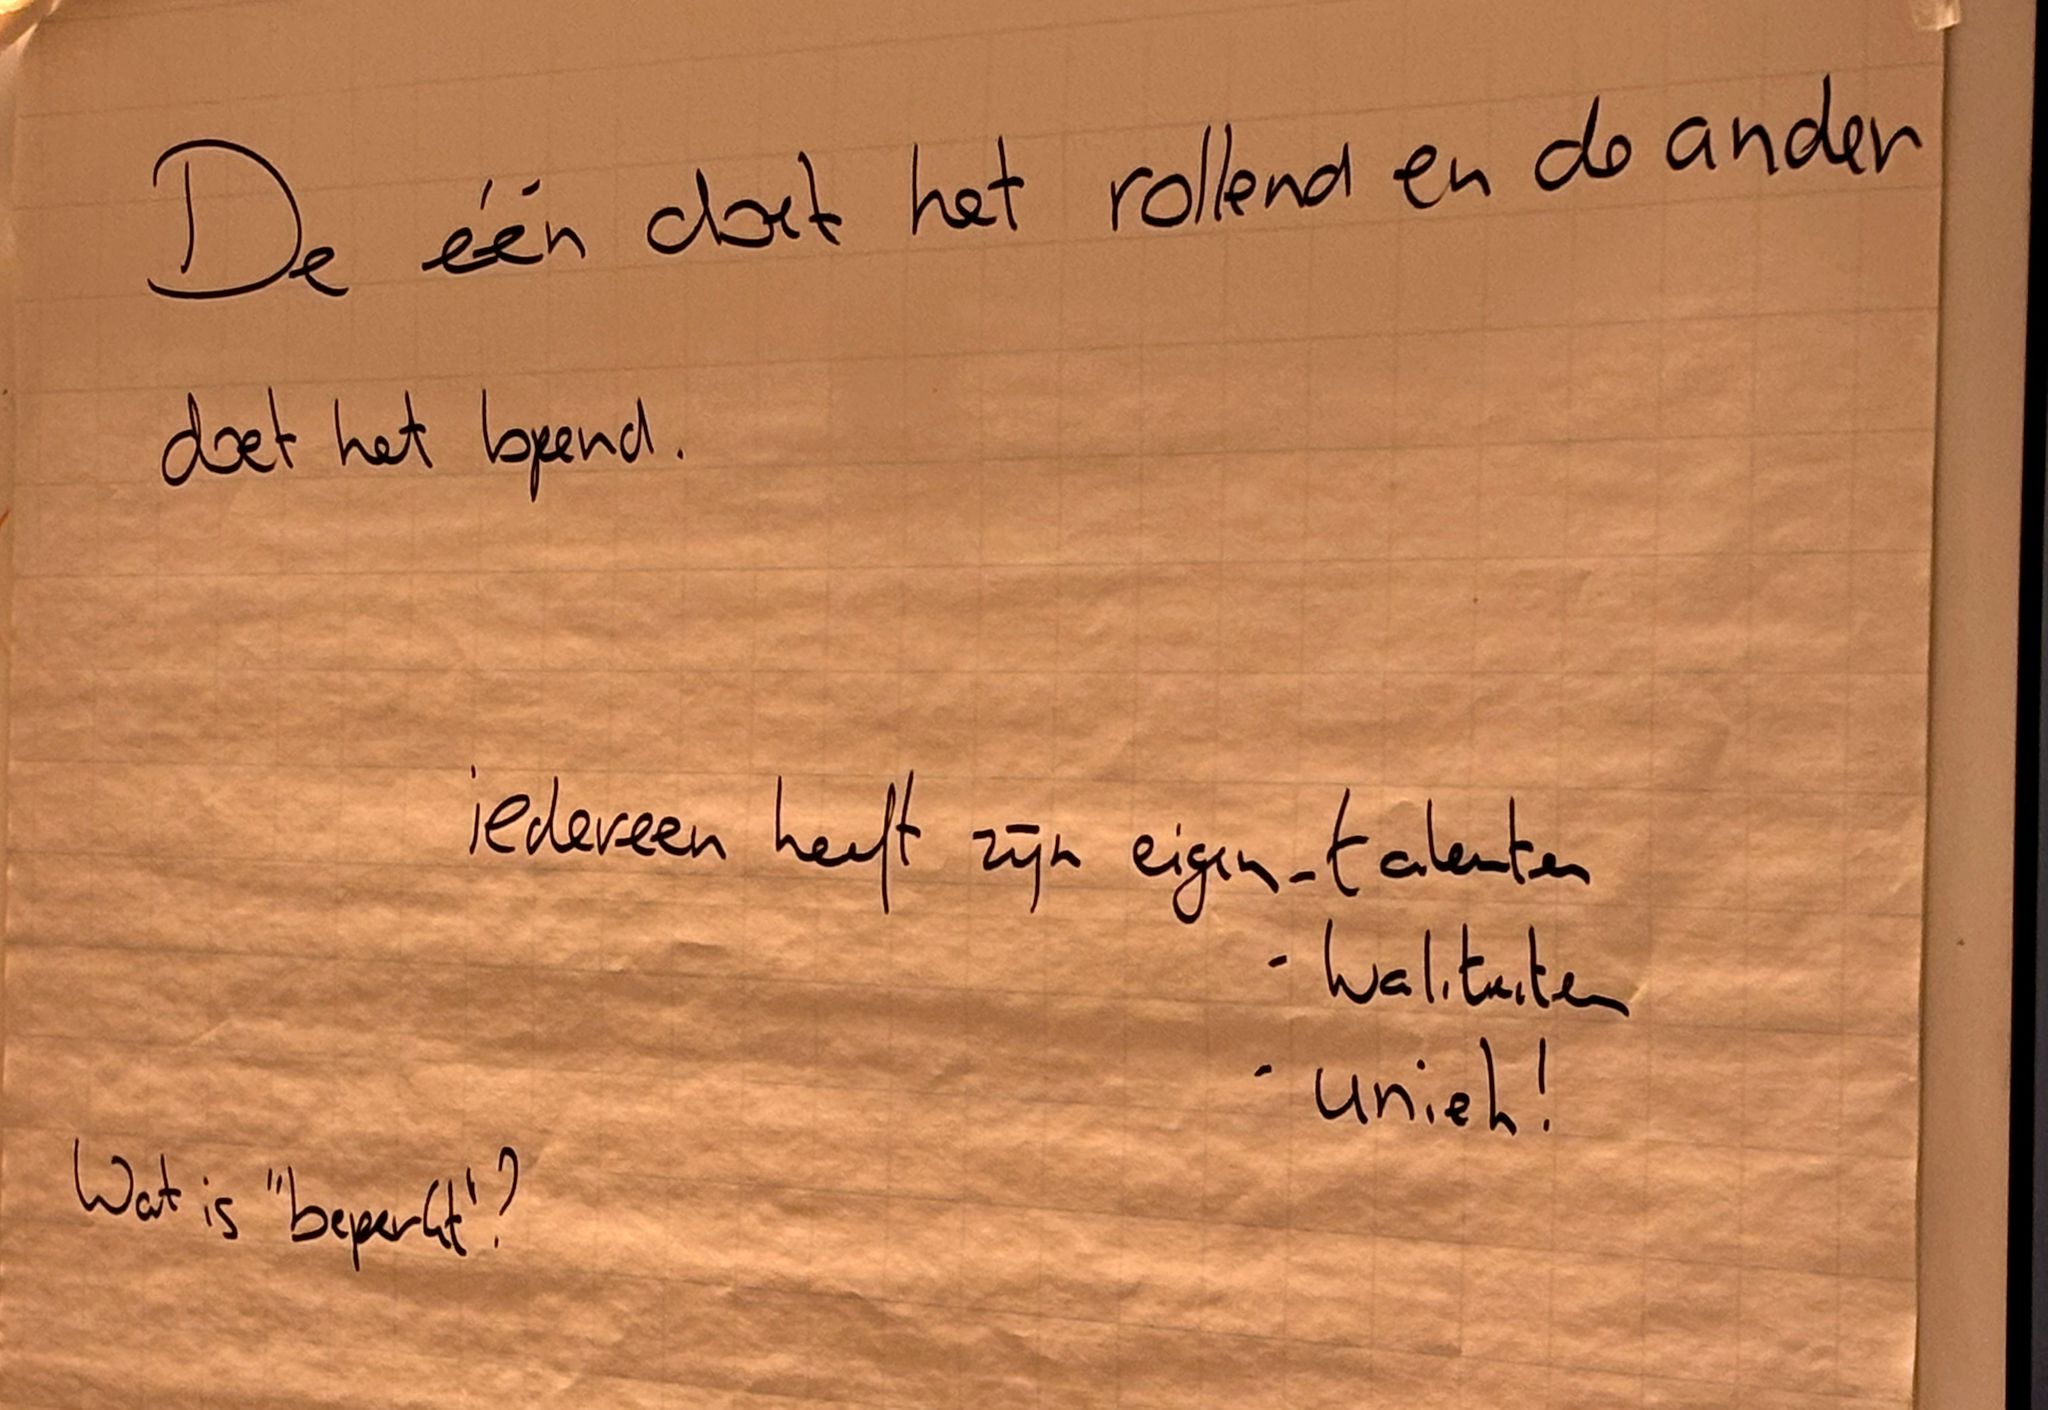 De één doet het rollend en de ander
doet het lopend.
iedereen heeft zijn eigen - talenten
- kwaliteiten
- uniek!
Wat is "beperkt"?